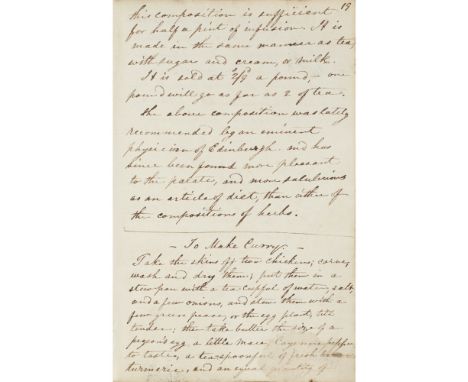 19
this composition is sufficient
for half a pint of infusion. It is
made in the same manner as tea,
with sugar and cream, or milk.
It is sold at a pound, – one
pound will go as far as 2 of tea.
The above composition was lately
recommended by an eminent
physician of Edinburgh. and has
since been found more pleasant
to the palate, and more salubrious
as an article of diet, than either of
the compositions of herbs.
– To Make Curry –
Take the skins off two chickens; carve,
wash and dry them; put them in a
stew pan with a tea cupful of water, salt,
and a few onions, and stew them with a
few green pease, or the egg plant, till
tender; the take butter the size of a
pigeon's egg a little mace, Cayenne pepper
to taste, a teaspoonful of fresh
turmeric, and an equal quantity of